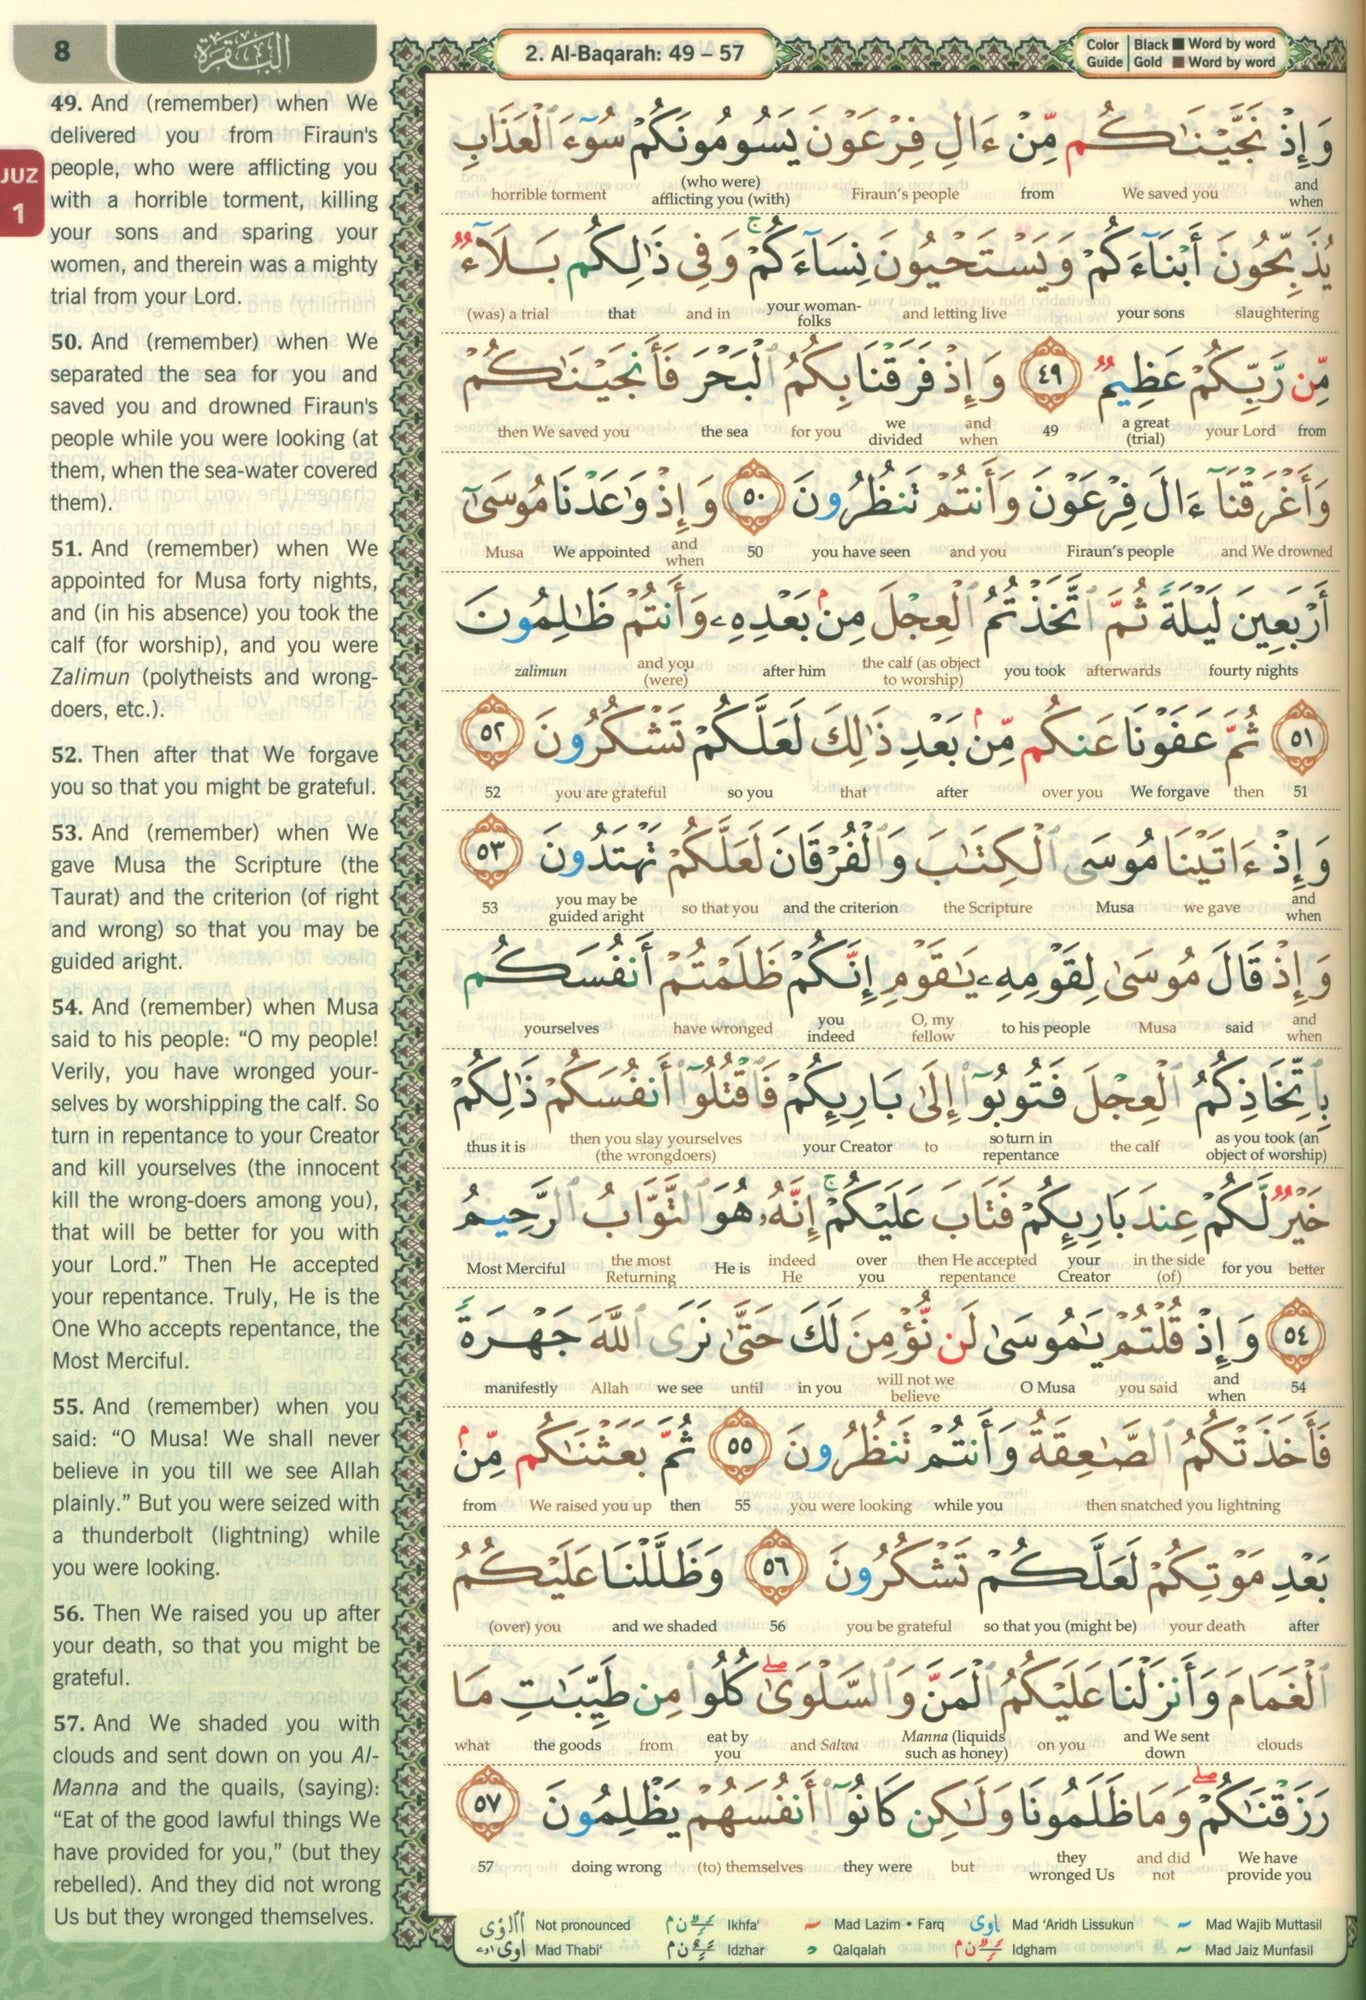 8
البقرة
2. Al-Baqarah: 49 – 57
Color Guide
Black ■ Word by word
Gold ■ Word by word
JUZ
1
49. And (remember) when We
delivered you from Firaun's
people, who were afflicting you
with a horrible torment, killing
your sons and sparing your
women, and therein was a mighty
trial from your Lord.
50. And (remember) when We
separated the sea for you and
saved you and drowned Firaun's
people while you were looking (at
them, when the sea-water covered
them).
51. And (remember) when We
appointed for Musa forty nights,
and (in his absence) you took the
calf (for worship), and you were
Zalimun (polytheists and wrong-
doers, etc.).
52. Then after that We forgave
you so that you might be grateful.
53. And (remember) when We
gave Musa the Scripture (the
Taurat) and the criterion (of right
and wrong) so that you may be
guided aright.
54. And (remember) when Musa
said to his people: “O my people!
Verily, you have wronged your-
selves by worshipping the calf. So
turn in repentance to your Creator
and kill yourselves (the innocent
kill the wrong-doers among you),
that will be better for you with
your Lord.” Then He accepted
your repentance. Truly, He is the
One Who accepts repentance, the
Most Merciful.
55. And (remember) when you
said: “O Musa! We shall never
believe in you till we see Allah
plainly.” But you were seized with
a thunderbolt (lightning) while
you were looking.
56. Then We raised you up after
your death, so that you might be
grateful.
57. And We shaded you with
clouds and sent down on you Al-
Manna and the quails, (saying):
“Eat of the good lawful things We
have provided for you,” (but they
rebelled). And they did not wrong
Us but they wronged themselves.
وَإِذْ نَجَّيْنَٰكُم مِّنْ ءَالِ فِرْعَوْنَ يَسُومُونَكُمْ سُوٓءَ ٱلْعَذَابِ
horrible torment (who were) afflicting you (with) Firaun's people from We saved you and when
يُذَبِّحُونَ أَبْنَآءَكُمْ وَيَسْتَحْيُونَ نِسَآءَكُمْ ۚ وَفِى ذَٰلِكُم بَلَآءٌ
(was) a trial that and in your woman-folks and letting live your sons slaughtering
مِّن رَّبِّكُمْ عَظِيمٌ ٤٩ وَإِذْ فَرَقْنَا بِكُمُ ٱلْبَحْرَ فَأَنجَيْنَٰكُمْ
then We saved you the sea for you we divided and when 49 a great (trial) your Lord from
وَأَغْرَقْنَآ ءَالَ فِرْعَوْنَ وَأَنتُمْ تَنظُرُونَ ٥٠ وَإِذْ وَٰعَدْنَا مُوسَىٰٓ
Musa We appointed and when 50 you have seen and you Firaun's people and We drowned
أَرْبَعِينَ لَيْلَةً ثُمَّ ٱتَّخَذْتُمُ ٱلْعِجْلَ مِنۢ بَعْدِهِۦ وَأَنتُمْ ظَٰلِمُونَ
zalimun and you (were) after him the calf (as object to worship) you took afterwards fourty nights
٥١ ثُمَّ عَفَوْنَا عَنكُم مِّنۢ بَعْدِ ذَٰلِكَ لَعَلَّكُمْ تَشْكُرُونَ ٥٢
52 you are grateful so you that after over you We forgave then 51
وَإِذْ ءَاتَيْنَا مُوسَى ٱلْكِتَٰبَ وَٱلْفُرْقَانَ لَعَلَّكُمْ تَهْتَدُونَ ٥٣
53 you may be guided aright so that you and the criterion the Scripture Musa we gave and when
وَإِذْ قَالَ مُوسَىٰ لِقَوْمِهِۦ يَٰقَوْمِ إِنَّكُمْ ظَلَمْتُمْ أَنفُسَكُم
yourselves have wronged you indeed O, my fellow to his people Musa said and when
بِٱتِّخَاذِكُمُ ٱلْعِجْلَ فَتُوبُوٓا۟ إِلَىٰ بَارِئِكُمْ فَٱقْتُلُوٓا۟ أَنفُسَكُمْ ذَٰلِكُمْ
thus it is then you slay yourselves (the wrongdoers) your Creator to so turn in repentance the calf as you took (an object of worship)
خَيْرٌ لَّكُمْ عِندَ بَارِئِكُمْ فَتَابَ عَلَيْكُمْ ۚ إِنَّهُۥ هُوَ ٱلتَّوَّابُ ٱلرَّحِيمُ
Most Merciful the most Returning He is indeed He over you then He accepted repentance your Creator in the side (of) for you better
٥٤ وَإِذْ قُلْتُمْ يَٰمُوسَىٰ لَن نُّؤْمِنَ لَكَ حَتَّىٰ نَرَى ٱللَّهَ جَهْرَةً
manifestly Allah we see until in you will not we believe O Musa you said and when 54
فَأَخَذَتْكُمُ ٱلصَّٰعِقَةُ وَأَنتُمْ تَنظُرُونَ ٥٥ ثُمَّ بَعَثْنَٰكُم مِّنۢ
from We raised you up then 55 you were looking while you then snatched you lightning
بَعْدِ مَوْتِكُمْ لَعَلَّكُمْ تَشْكُرُونَ ٥٦ وَظَلَّلْنَا عَلَيْكُمُ
(over) you and we shaded 56 you be grateful so that you (might be) your death after
ٱلْغَمَامَ وَأَنزَلْنَا عَلَيْكُمُ ٱلْمَنَّ وَٱلسَّلْوَىٰ ۖ كُلُوا۟ مِن طَيِّبَٰتِ مَا
what the goods from eat by you and Salwa Manna (liquids such as honey) on you and We sent down clouds
رَزَقْنَٰكُمْ ۖ وَمَا ظَلَمُونَا وَلَٰكِن كَانُوٓا۟ أَنفُسَهُمْ يَظْلِمُونَ ٥٧
57 doing wrong (to) themselves they were but they wronged Us and did not We have provide you
Not pronounced Ikhfa' Mad Lazim • Farq Mad 'Aridh Lissukun Mad Wajib Muttasil
Mad Thabi' Idzhar Qalqalah Idgham Mad Jaiz Munfasil